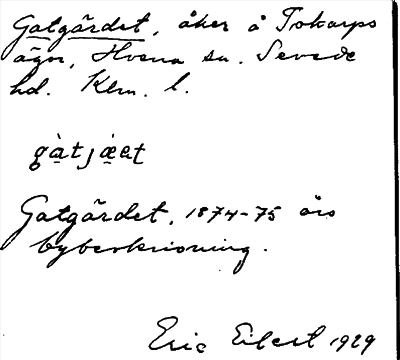 Gatgärdet, åker å Tokarps
ägor, Hvena sn. Sevede
hd. Klm. l.
gàtjæ̀ət
Gatgärdet, 1874-75 års
byberkrivning.
Eric Eilert 1929